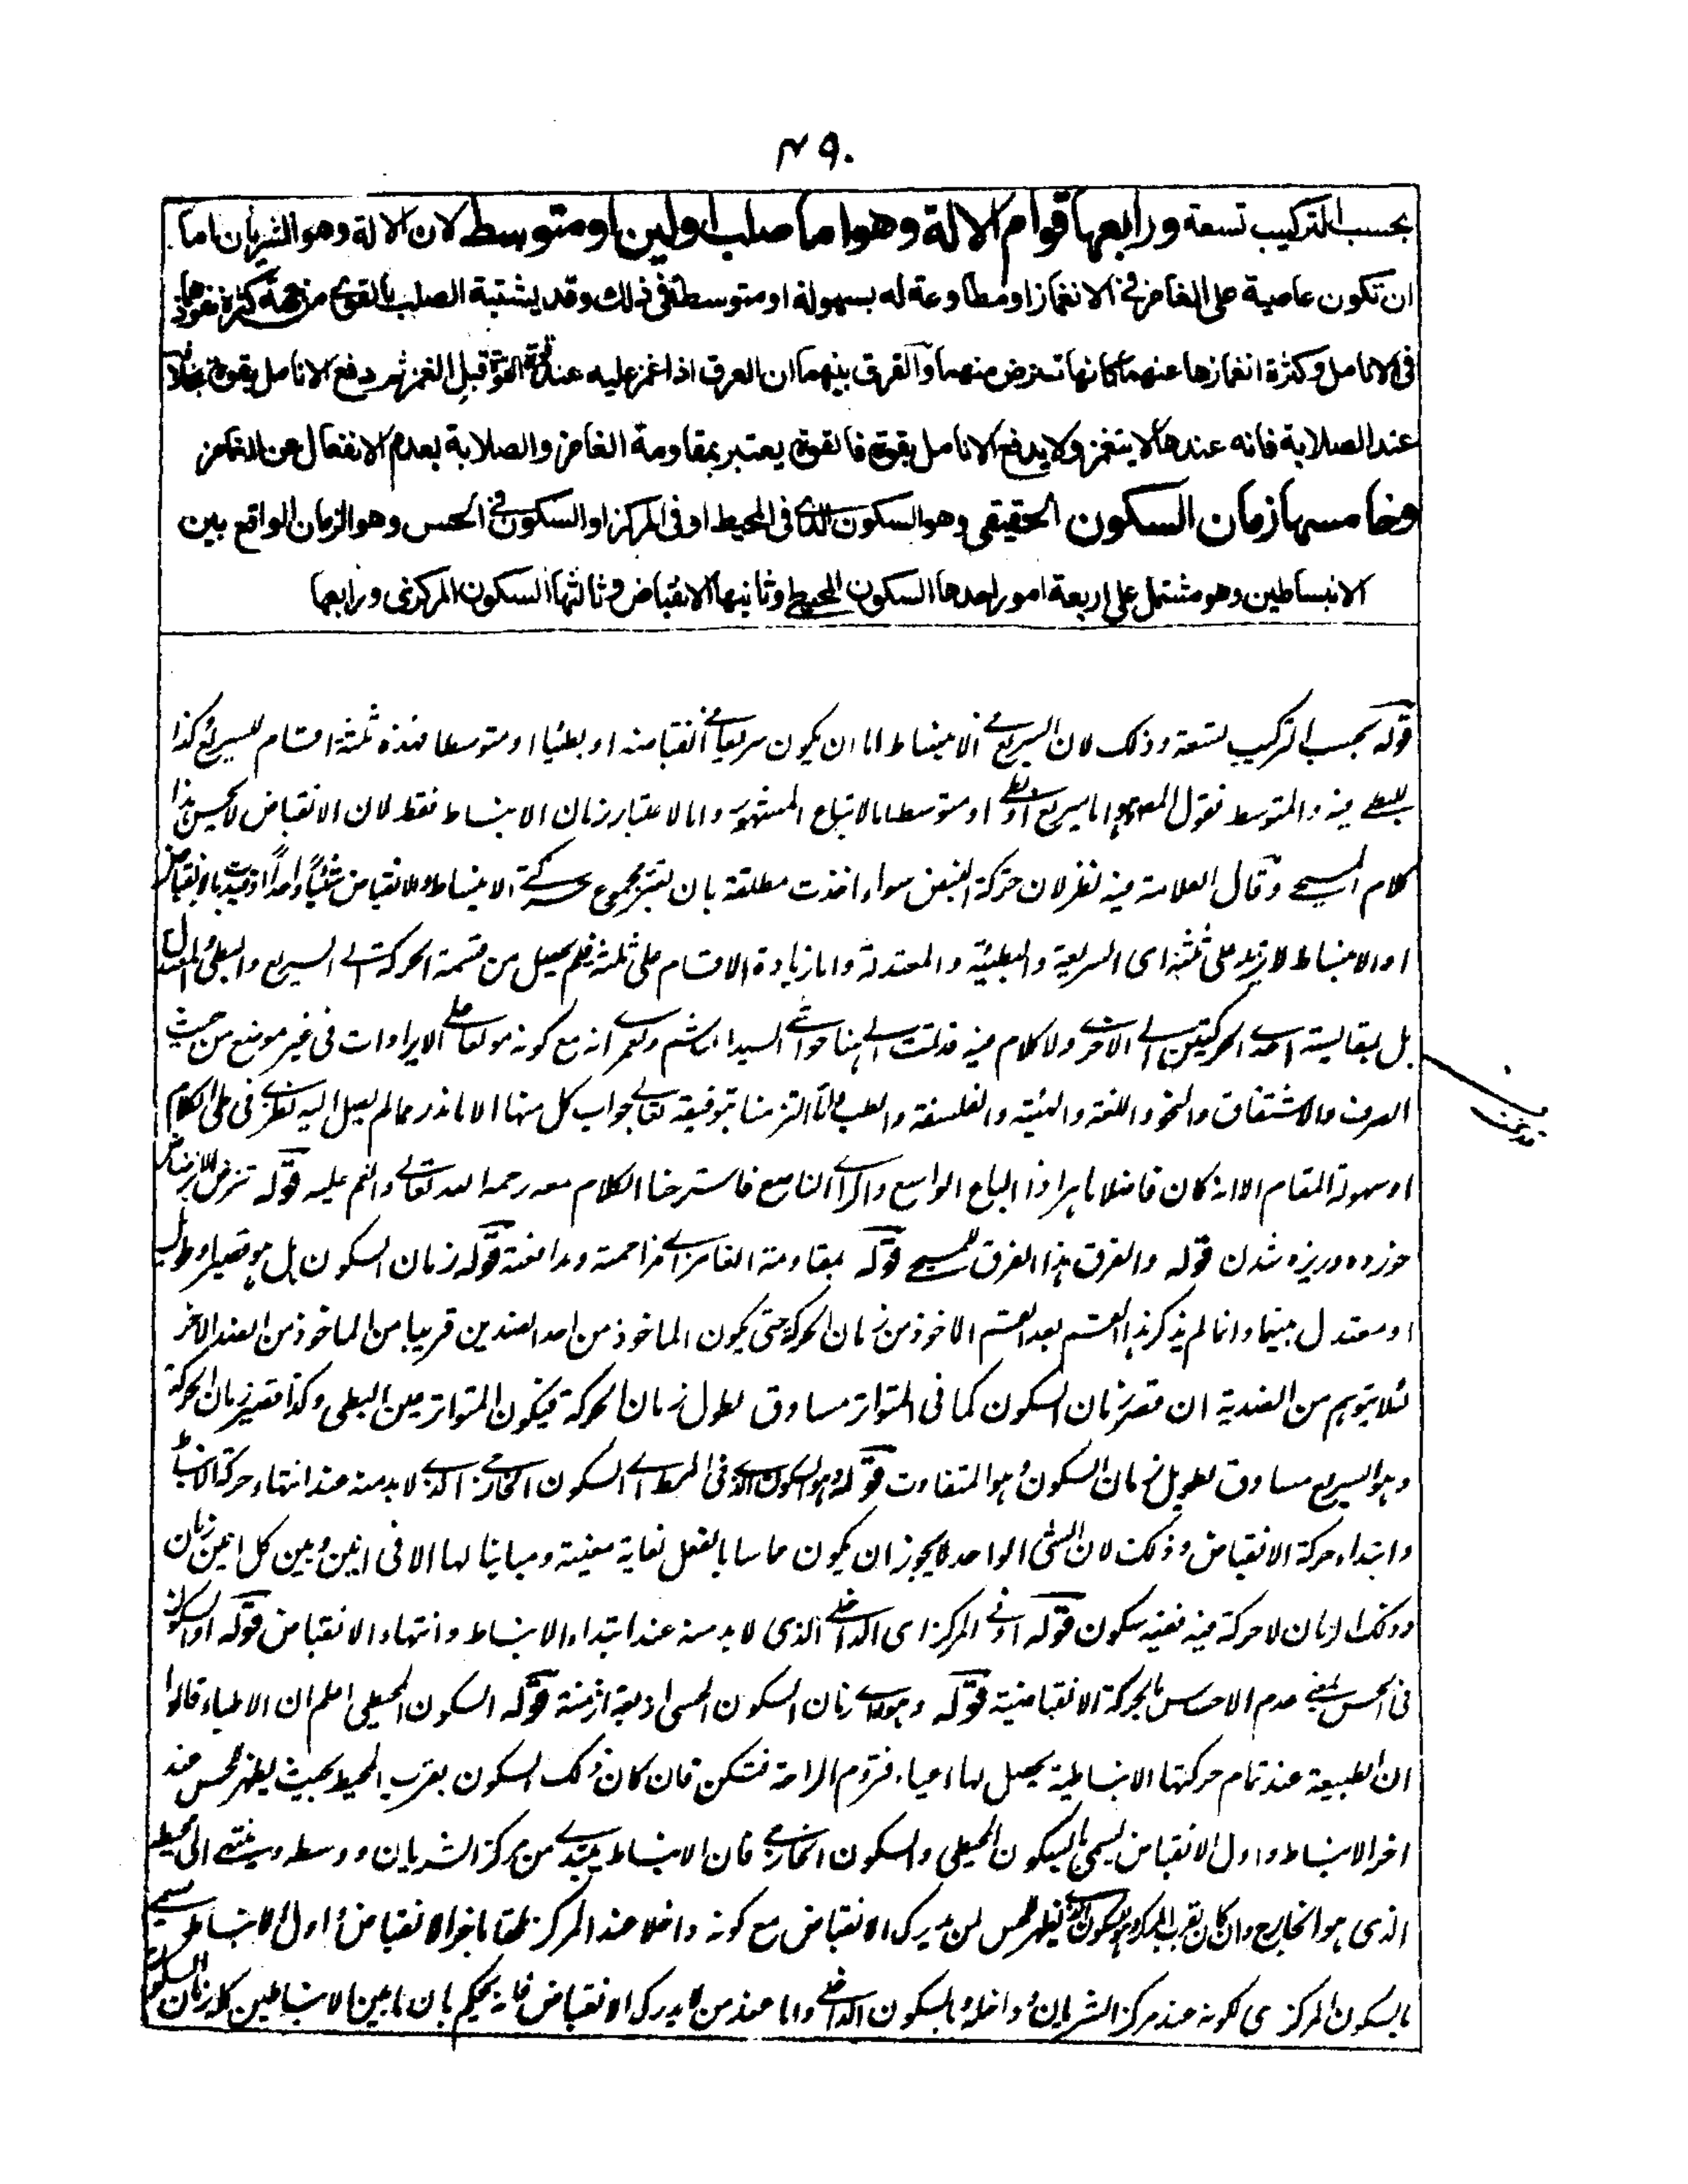 ۴۹۰
بحسب التركيب تسعة ورابعها قوام الالة وهو اما صلب اولين او متوسط لان الالة وهو الشريان اما
ان تكون عاصية على الغامز فى الانغماز او مطاوعة له بسهولة او متوسطة فى ذلك وقد يشتبه الصلب بالقوى من جهة كثرة نفوذها
فى الانامل وكثرة انغمازها عنهما كانها تترضض منهما والفرق بينهما ان العرق اذا غمز عليه عند القوة قبل الغمز ثم دفع الانامل بقوة بخلاف
عند الصلابة فانه عندها لا ينغمز ولا يدفع الانامل بقوة فالقوة يعتبر بمقاومة الغامز والصلابة بعدم الانفعال عن الغامز
وخامسها زمان السكون الحقيقى وهو السكون الذى فى المحيط او فى المركز او السكون فى الحس وهو الزمان الواقع بين
الانبساطين وهو مشتمل على اربعة امور احدها السكون المحيطى وثانيها الانقباض وثالثها السكون المركزى ورابعها
قوله بحسب التركيب تسعة وذلك لان السريع الانبساط اما ان يكون سريعا انقباضه او بطيئا او متوسطا فهذه ثلثة اقسام للسريع كذا
للبطى فيه والمتوسط فقول المص وهو اما سريع او بطى او متوسط اما لاتباع المشهور واما لاعتبار زمان الانبساط فقط لان الانقباض لا يحس هذا
كلام المسيحى وقال العلامة فيه نظر لان حركة النبض سواء اخذت مطلقة بان يعتبر مجموع حركة الانبساط والانقباض شيئا واحدا او قيدت بالانقباض
او الانبساط لا تزيد على ثلثة اى السريعة والبطيئة والمعتدلة واما زيادة الاقسام على ثلثة فلم يحصل من قسمة الحركة الى السريع والبطى والمعتدل
بل بمقايسة احدى الحركتين الى الاخرى ولا كلام فيه قد تمت الى هنا حواشى السيد الهاشم ولعمرى انه مع كونه مولعا على الايرادات فى غير موضع من حيث
الصرف والاشتقاق والنحو واللغة والهيئة والفلسفة والطب وانا التزمنا بتوفيقه تعالى جواب كل منها الا ما ندر مما لم يصل اليه نظرى فى طى الكلام
او سهولة المقام الا انه كان فاضلا ماهرا ذا الباع الواسع والراى الناصع فاسترحنا الكلام معه رحمه الله تعالى وانعم عليه قوله ترضض
خورده و ريزه شدن قوله والفرق هذا الفرق للمسيحى قوله بمقاومة الغامز اى مزاحمة ومدافعة قوله زمان السكون بل هو قصير او طويل
او معتدل بينهما وانما لم يذكر هذا القسم بعد القسم الاخوذ من زمان الحركة حتى يكون الماخوذ من احد الضدين قريبا من الماخوذ من الضد الاخر
لئلا يتوهم من الضدية ان قصر زمان السكون كما فى المتواتر مساوق لطول زمان الحركة فيكون المتواتر عين البطى وكذا قصر زمان الحركة
وهو السريع مساوق لطويل زمان السكون وهو المتفاوت قوله وهو السكون الذى فى المحيط اى السكون الخارجى الذى لابد منه عند انتهاء حركة الانبساط
وابتداء حركة الانقباض وذلك لان الشئ الواحد لا يجوز ان يكون مماسا بالفعل نعاية معينة ومباينا لها الا فى انين وبين كل انين زمان
وذلك الزمان لا حركة فيه ففيه سكون قوله او فى المركز اى الداخلى الذى لابد منه عند ابتداء الانبساط وانتهاء الانقباض قوله او السكون
فى الحس بمعنى عدم الاحساس بالحركة الانقباضية قوله وهو اى زمان السكون الحسى اربعة ازمنة قوله السكون المحيطى اعلم ان الاطباء قالوا
ان الطبيعة عند تمام حركتها الانبساطية يحصل لها اعياء فتروم الراحة فتسكن فان كان ذلك السكون بقرب المحيط بحيث يظهر للحس عند
اخر الانبساط واول الانقباض يسمى بالسكون المحيطى والسكون الخارجى فان الانبساط يبتدى من مركز الشريان ووسطه وينتهى الى محيطه
الذى هو الخارج وان كان بقرب المركز وهو السكون الذى يظهر للحس لمن يدرك الانقباض مع كونه داخلا عند المركز لحقا باخر الانقباض واول الانبساط يسمى
بالسكون المركزى لكونه عند مركز الشريان وداخله بالسكون الداخلى واما عند من لا يدرك الانقباض فانه يحكم بان ما بين الانبساطين كله زمان السكون